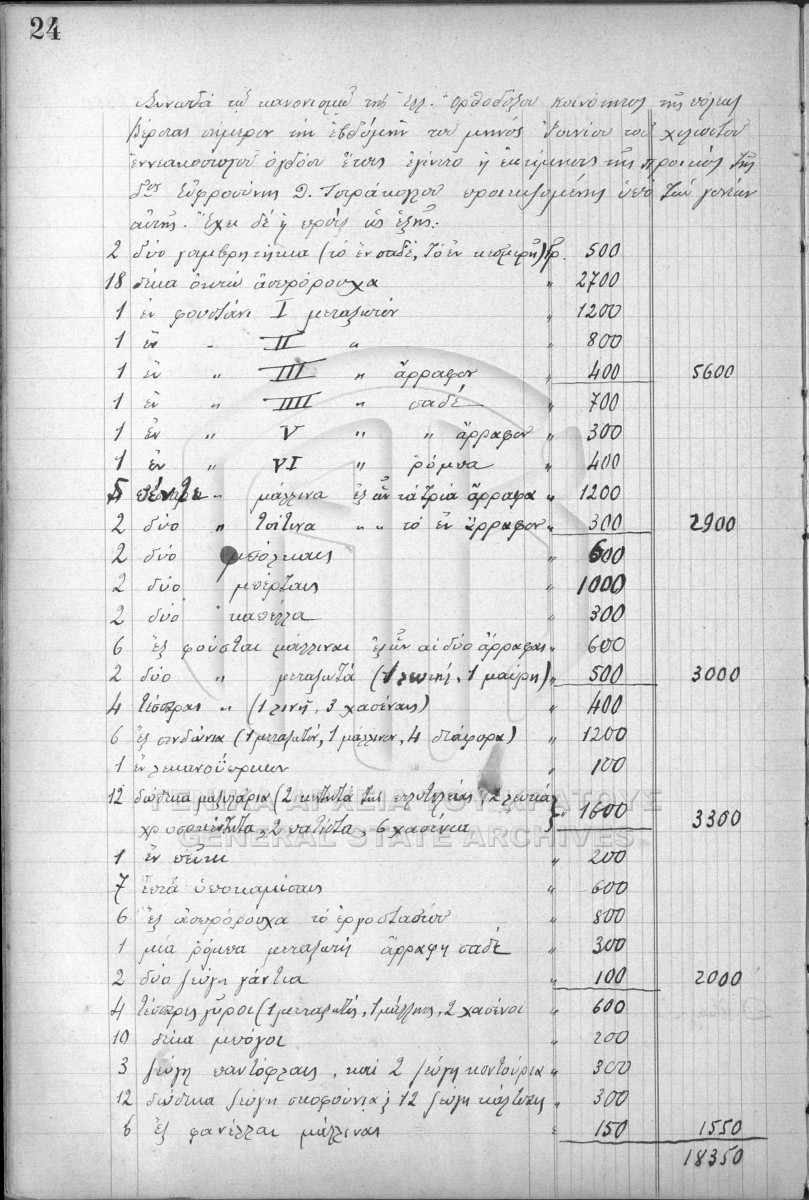 24
Συνωδά τῷ κανονισμῷ τῆς Ἑλλ. Ὀρθοδόξου Κοινότητος τῆς πόλεως
Βερροίας σήμερον τὴν ἑβδόμην τοῦ μηνὸς Ἰουνίου τοῦ χιλιοστοῦ
ἐννεακοσιοστοῦ ὀγδόου ἔτους ἐγένετο ἡ ἐκτίμησις τῆς προικὸς τῆς
δδος Εὐφροσύνης Δ. Τσιράκογλου προικιζομένης ὑπὸ τῶν γονέων
αὐτῆς. Ἔχει δὲ ἡ προίξ ὡς ἑξῆς:
2 δύο γαμβρητήκια (τὸ ἓν σαδέ, τὸ ἓν κεσμιρῆ) Γρ. 500
18 δέκα ὀκτώ ἀσπρόρουχα " 2700
1 ἓν φουστάνι I μεταξωτόν " 1200
1 ἓν " II " " 800
1 ἓν " III " ἄρραφον " 400 5600
1 ἓν " IIII " σαδέ " 700
1 ἓν " V " " ἄρραφον " 300
1 ἓν " VI " ρόμπα " 400
5 πέντε " μάλλινα ἐξ ὧν τὰ τρία ἄρραφα " 1200
2 δύο " τσίτινα " " τὸ ἓν ἄρραφον " 300 2900
2 δύο μπόλκαις " 600
2 δύο μπέρταις " 1000
2 δύο καπέλλα " 300
6 ἓξ φούσται μάλλιναι ἐξ ὧν αἱ δύο ἄρραφαι " 600
2 δύο " μεταξωτά (1 , 1 μαύρη) " 500 3000
4 τέσσρας " (1 λινῆ, 3 χασέναις) " 400
6 ἓξ σινδόνια (1 μεταξωτόν, 1 μάλλινον, 4 διάφορα) " 1200
1 ἓν " 100
12 δώδεκα μαξιλάρια (2 κεντητά τῆς πολυτελείας, 2 λευκά
χρυσοκέντητα, 2 , 6 χασένια) " 1600 3300
ΓΕΝΙΚΑ ΑΡΧΕΙΑ ΤΟΥ ΚΡΑΤΟΥΣ
GENERAL STATE ARCHIVES
1 ἓν πεῦκι " 200
7 ἑπτά ὑποκαμίσαις " 600
6 ἓξ ἀσπρόρουχα τὸ ἐργοστασίου " 800
1 μία ρόμπα μεταξωτή ἄρραφη σαδέ " 300
2 δύο ζεύγη γάντια " 100 2000
4 τέσσερις γῦροι (1 μεταξωτός, 1 μάλλινος, 2 χασένιοι " 600
10 δέκα μπόγοι " 200
3 ζεύγη παντόφλαις, καὶ 2 ζεύγη κοντούρια " 300
12 δώδεκα ζεύγη σκοφούνια, 12 ζεύγη κάλτσαις " 300
6 ἓξ φανέλλαι μάλλιναι " 150 1550
18350